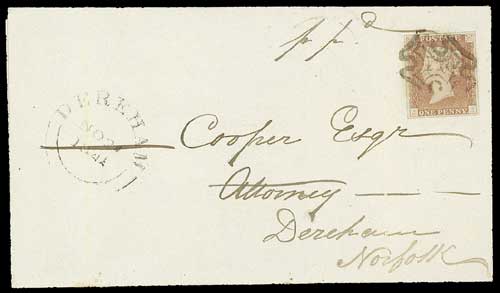 p p d
POSTAGE
DEREHAM
NO
1844
Cooper Esqr
Attorney
Dereham
Norfolk
ONE PENNY